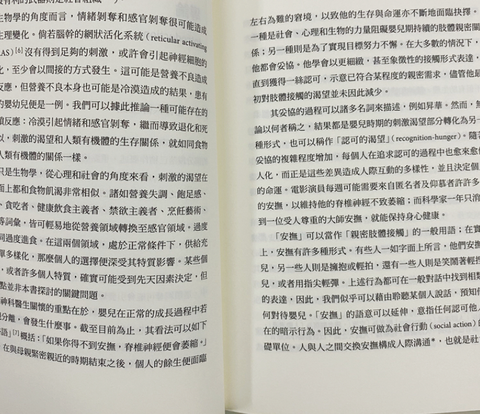 生物學的角度而言,情緒剝奪和感官剝奪很可能造成
生理變化。倘若腦幹的網狀活化系統(reticular activating
AS)[6]沒有得到足夠的刺激,或許會引起神經細胞的
化,至少會以間接的方式發生。這可能是營養不良造成
反應,但營養不良本身也可能是冷漠造成的結果,患有
的嬰幼兒便是一例。我們可以據此推論一種可能存在的
反應:冷漠引起情緒和感官剝奪,繼而導致退化和死
,刺激的渴望和人類有機體的生存關係,就如同食物
人類有機體的關係一樣。
只是生物學,從心理和社會的角度來看,刺激的渴望在
面上都和食物飢渴非常相似。諸如營養失調、飽足感、
、貪吃者、健康飲食主義者、禁欲主義者、烹飪藝術、
等詞彙,皆可輕易地從營養領域轉換至感官領域。過度
同過度進食。在這兩個領域,處於正常條件下,供給充
單多樣化,那麼個人的選擇便深受其特質影響。某些個
,或者許多個人特質,確實可能受到先天因素決定,但
點並非本書探討的關鍵問題。
神科醫生關懷的重點在於,嬰兒在正常的成長過程中若
分離,會發生什麼事。截至目前為止,其看法可以如下
語」[7]概括:「如果你得不到安撫,脊椎神經便會萎縮。」
,在與母親緊密親近的時期結束之後,個人的餘生便面臨
左右為難的窘境,以致他的生存與命運亦不斷地面臨抉擇。
一種是社會、心理和生物的力量阻礙嬰兒期持續的體態親密
係;另一則是為了實現目標努力不懈。在大多數的情況下,
他都會妥協。他學會以更細緻、甚至象徵性的接觸形式表達,
直到獲得一絲認可,示意已符合某程度的親密需求,儘管他最
初對肢體接觸的渴望並未因此減少。
其妥協的過程可以諸多名詞來描述,例如昇華。然而,無
論以何者稱之,結果都是嬰兒時期的刺激渴望部分轉化為另一
種形式,也可以稱作「認可的渴望」(recognition-hunger)。隨著
妥協的複雜程度增加,每個人在追求認可的過程中也愈來愈個
人化,而正是這些差異造成人際互動的多樣性,並且決定個人
的命運。電影演員每週可能需要來自匿名者及仰慕者許許多多
的安撫,以維持他的脊椎神經不致萎縮;而科學家一年只消
到一位受人尊重的大師安撫,就能保持身心健康。
「安撫」可以當作「親密肢體接觸」的一般用語;在實
上,安撫有許多種形式。有些人一如字面上所言,他們安撫
兒,另一些人則是擁抱或輕拍,還有一些人則是笑鬧著輕捏
兒,或者用指尖輕彈。上述行為都可在一般對話中找到相類
的表達,因此,我們似乎可以藉由聆聽某個人說話,預知他
何對待嬰兒。「安撫」的語意可以延伸,意指任何認可他人
在的暗示行為。因此,安撫可做為社會行動(social action)的
礎單位。人與人之間交換安撫構成人際溝通*,也就是社